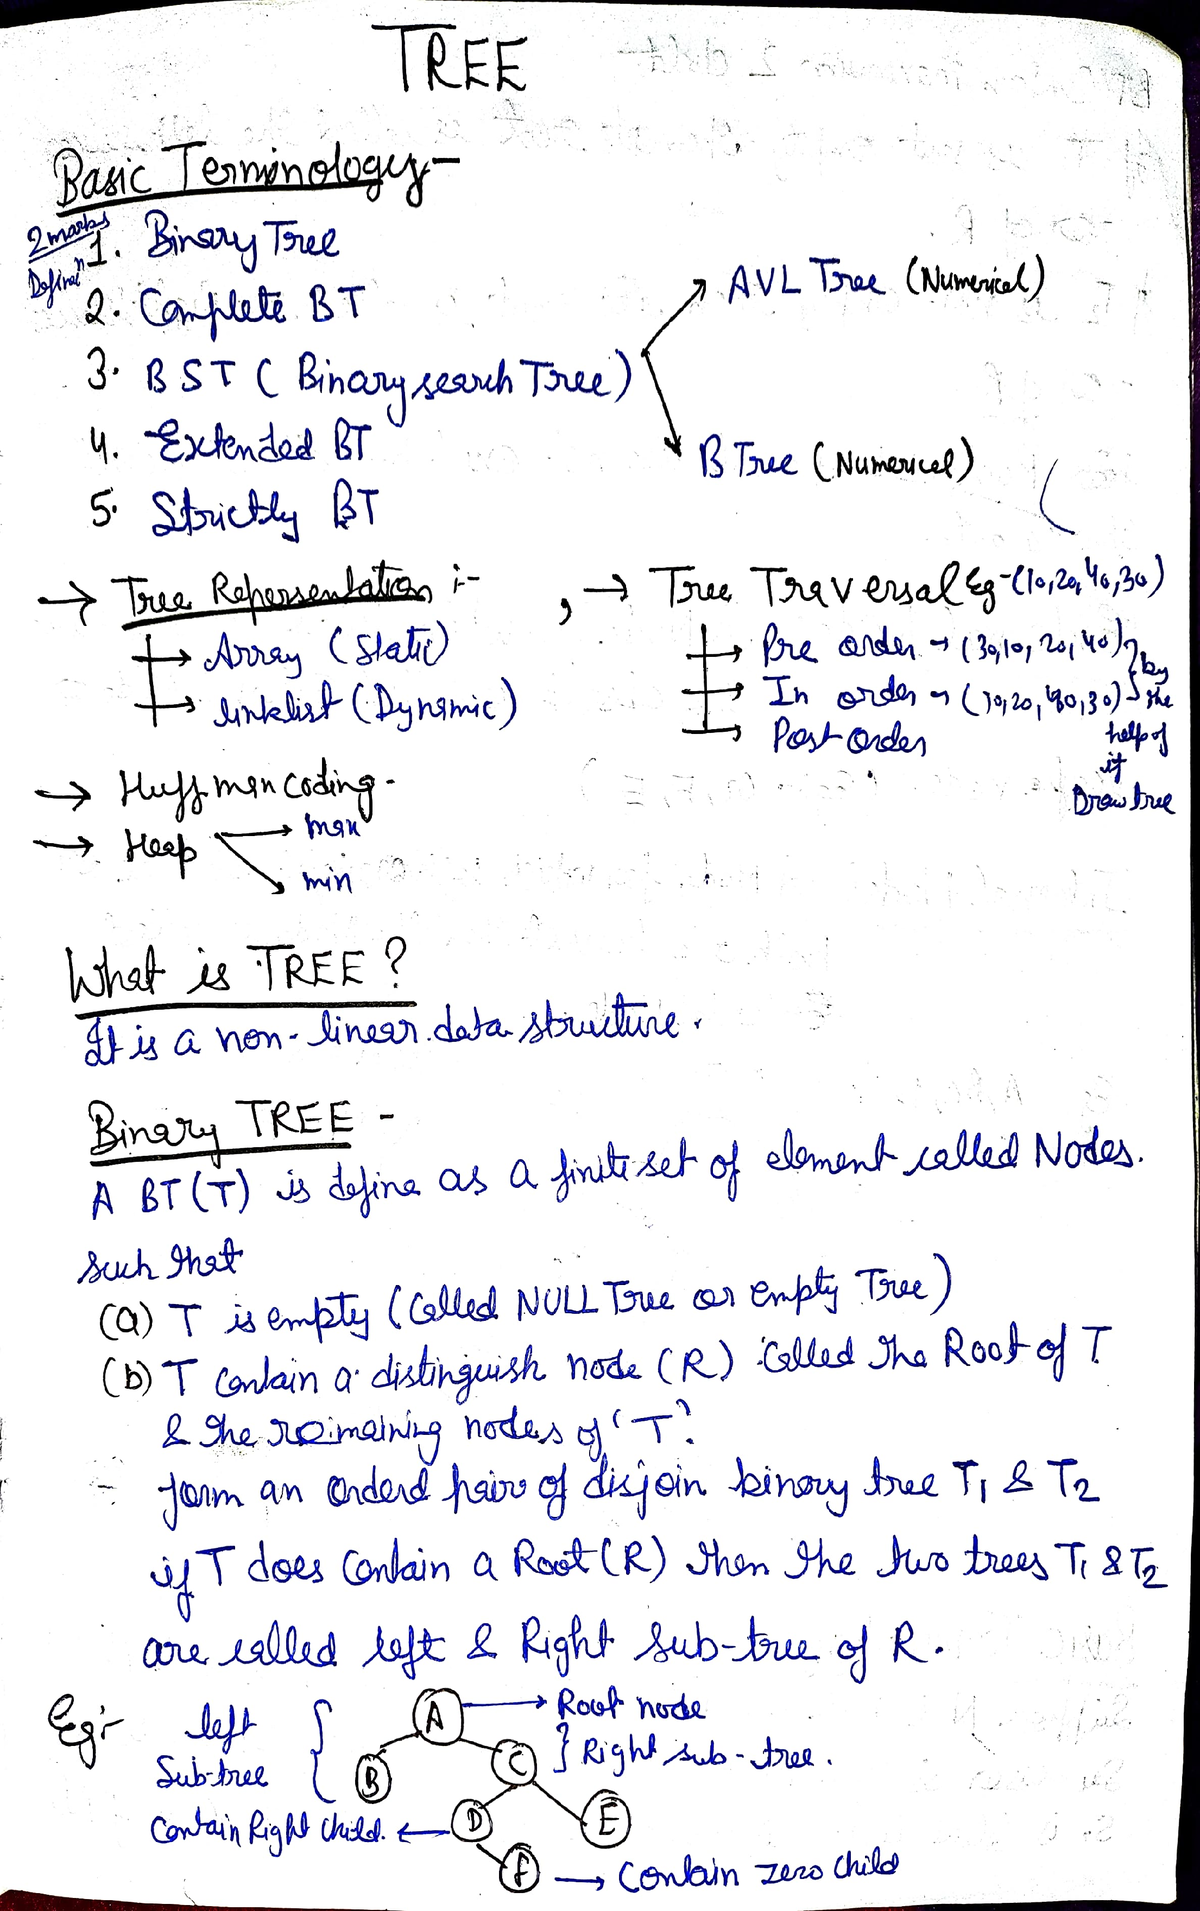 TREE
Basic Terminology-
2 marks
Definaⁿ
1. Binary Tree
2. Complete BT
3. BST (Binary search Tree)
AVL Tree (Numerical)
B Tree (Numerical)
4. Extended BT
5. Strictly BT
→ Tree Repersentation :-
→ Array (Static)
→ linklist (Dynamic)
, → Tree Traversal Eg-(10,20,40,30)
→ Pre order → (30,10,20,40) } by
→ In order → (10,20,40,30) } the
→ Post Order
help of
it
Draw tree
→ Huffman coding-
→ Heap → max
→ min
What is TREE?
It is a non-linear data structure.
Binary TREE -
A BT(T) is define as a finite set of element called Nodes.
such that
(a) T is empty (Called NULL Tree or empty Tree)
(b) T Contain a distinguish node (R) Called the Root of T
& the remaining nodes of 'T'
form an Orderd pair of disjoin binary tree T₁ & T₂
if T does Contain a Root (R) then the two trees T₁ & T₂
are called left & Right Sub-tree of R.
Eg:- left
Sub-tree
A → Root node
B
C } Right sub-tree.
Contain Right Child. ← D
E
F → Contain zero child